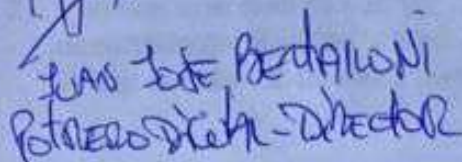 JUAN JOSE BECHAILONI
POTRERO DIGITAL - DIRECTOR